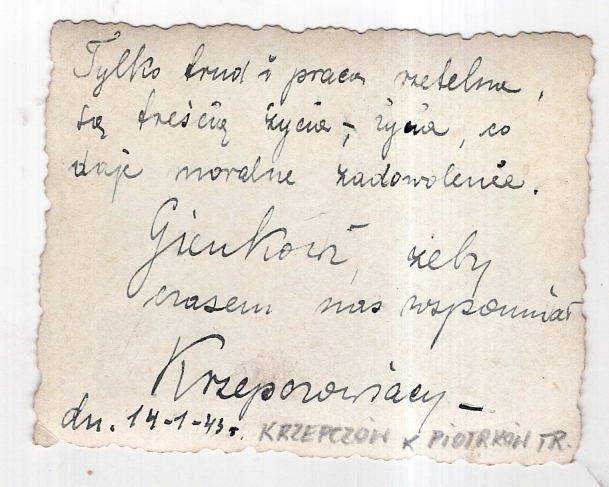 Tylko trud i praca rzetelna,
są treścią życia –, życia, co
daje moralne zadowolenie.
Gienkowi, żeby
czasem nas wspomniał
Krzepczowiacy –
dn. 14-1-43 r. KRZEPCZÓW K PIOTRKÓW TR.